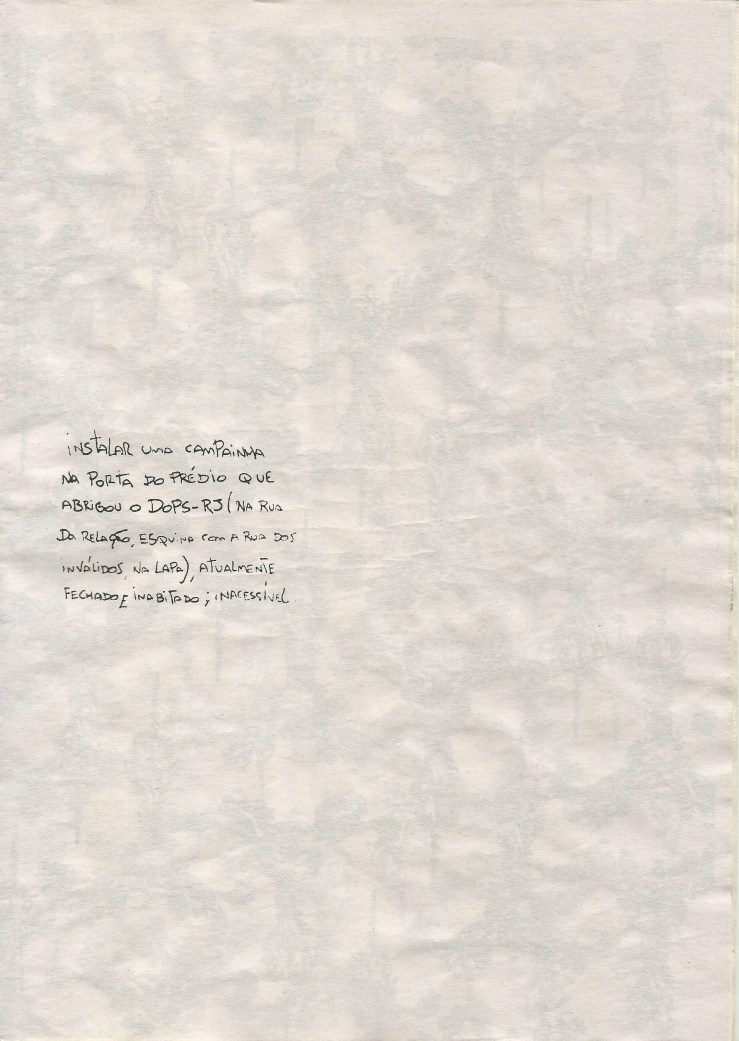 INSTALAR UMA CAMPAINHA
NA PORTA DO PRÉDIO QUE
ABRIGOU O DOPS-RJ (NA RUA
DA RELAÇÃO, ESQUINA COM A RUA DOS
INVÁLIDOS, NA LAPA), ATUALMENTE
FECHADO E INABITADO; INACESSÍVEL.